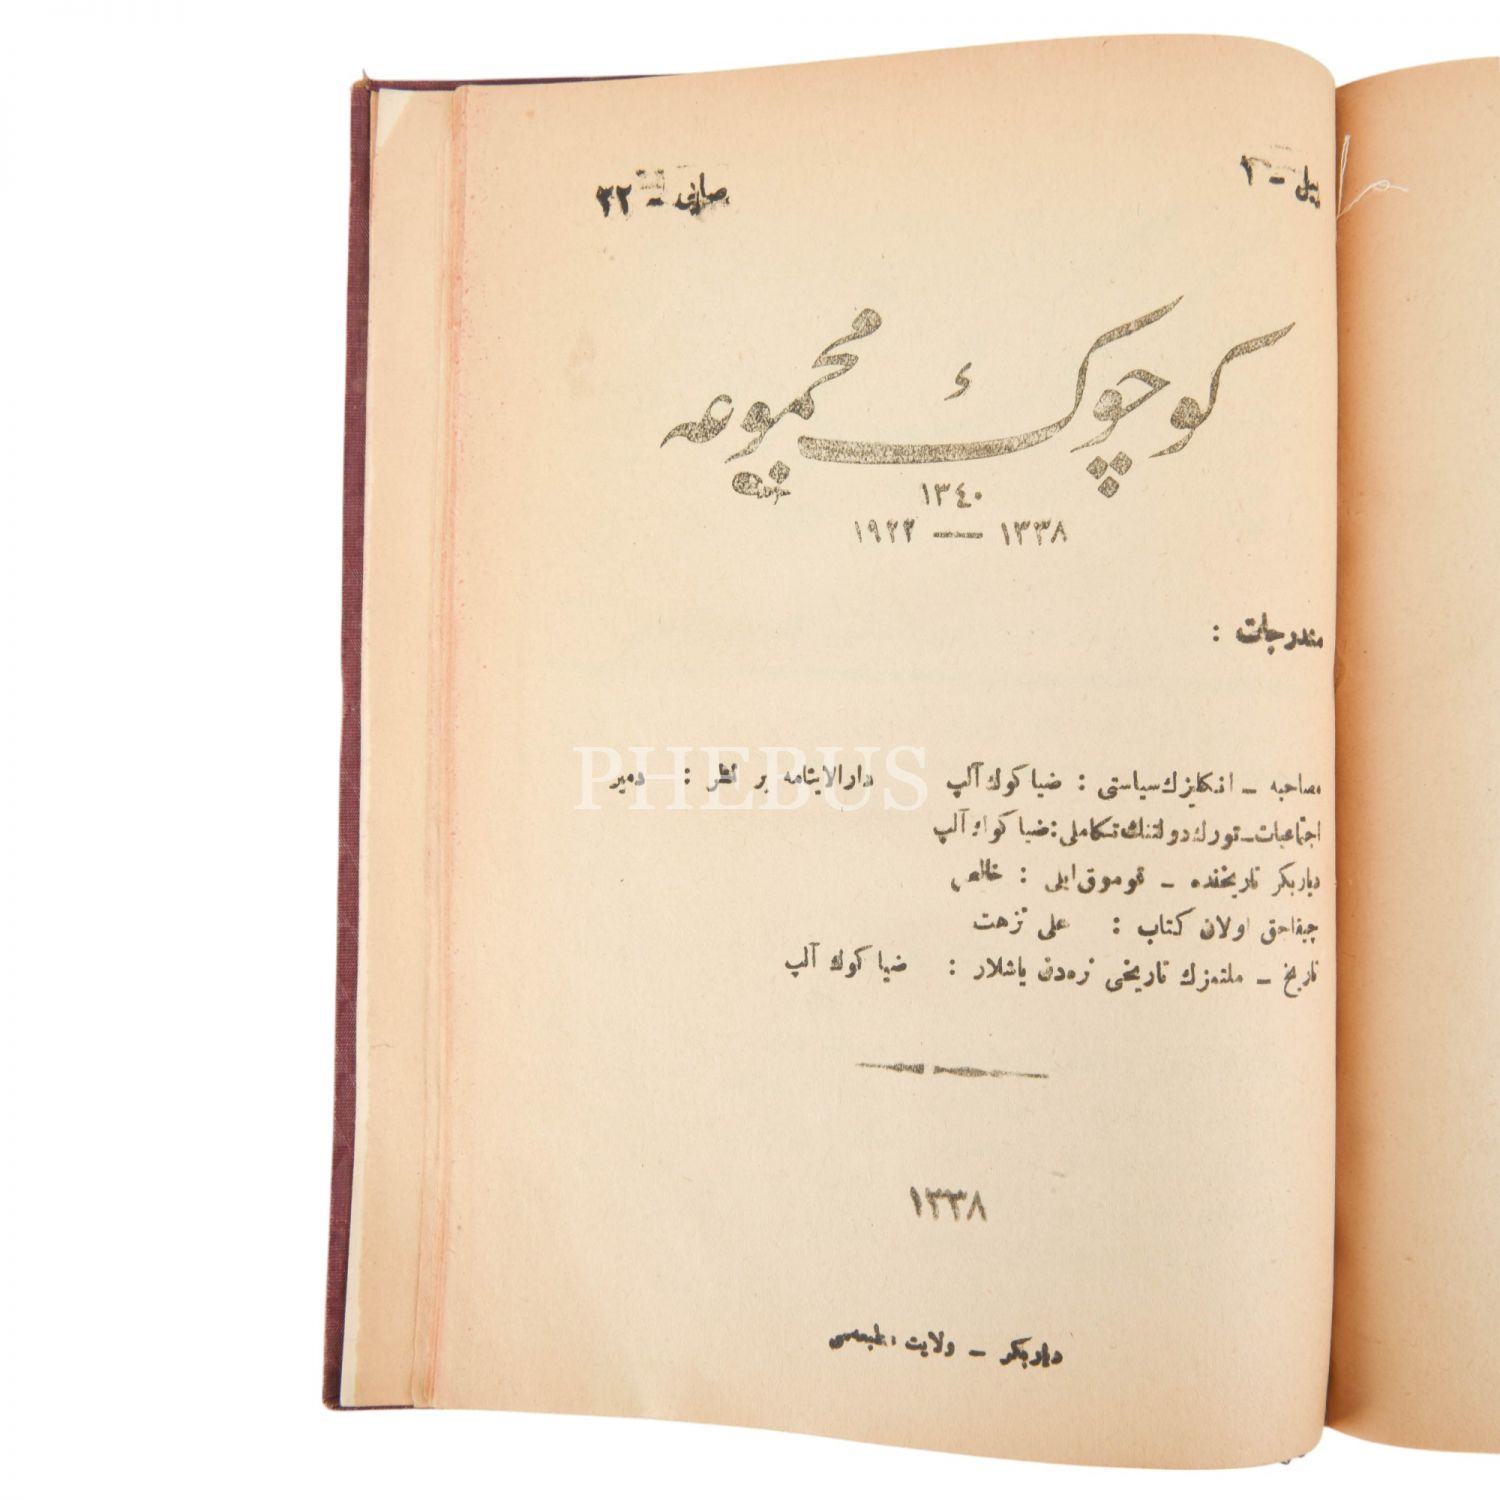 ییل - ١
صایی - ٣٢
کوچوک مجموعه
١٣٤٠
١٣٣٨ — ١٩٢٢
مندرجات :
مصاحبه ـ انکلیزك سیاستی : ضیا کوك آلپ    دارالایتامه بر نظر : دمیر
اجتماعیات ـ تورك دولتنك تکاملی : ضیا کوك آلپ
دیاربکر تاریخنده ـ قوموق ایلی : خالص
چیقاجق اولان کتاب : علی نزهت
تاریخ ـ ملتمزك تاریخی نره‌دن باشلار : ضیا کوك آلپ
١٣٣٨
دیاربکر ـ ولایت مطبعه‌سی
PHEBUS